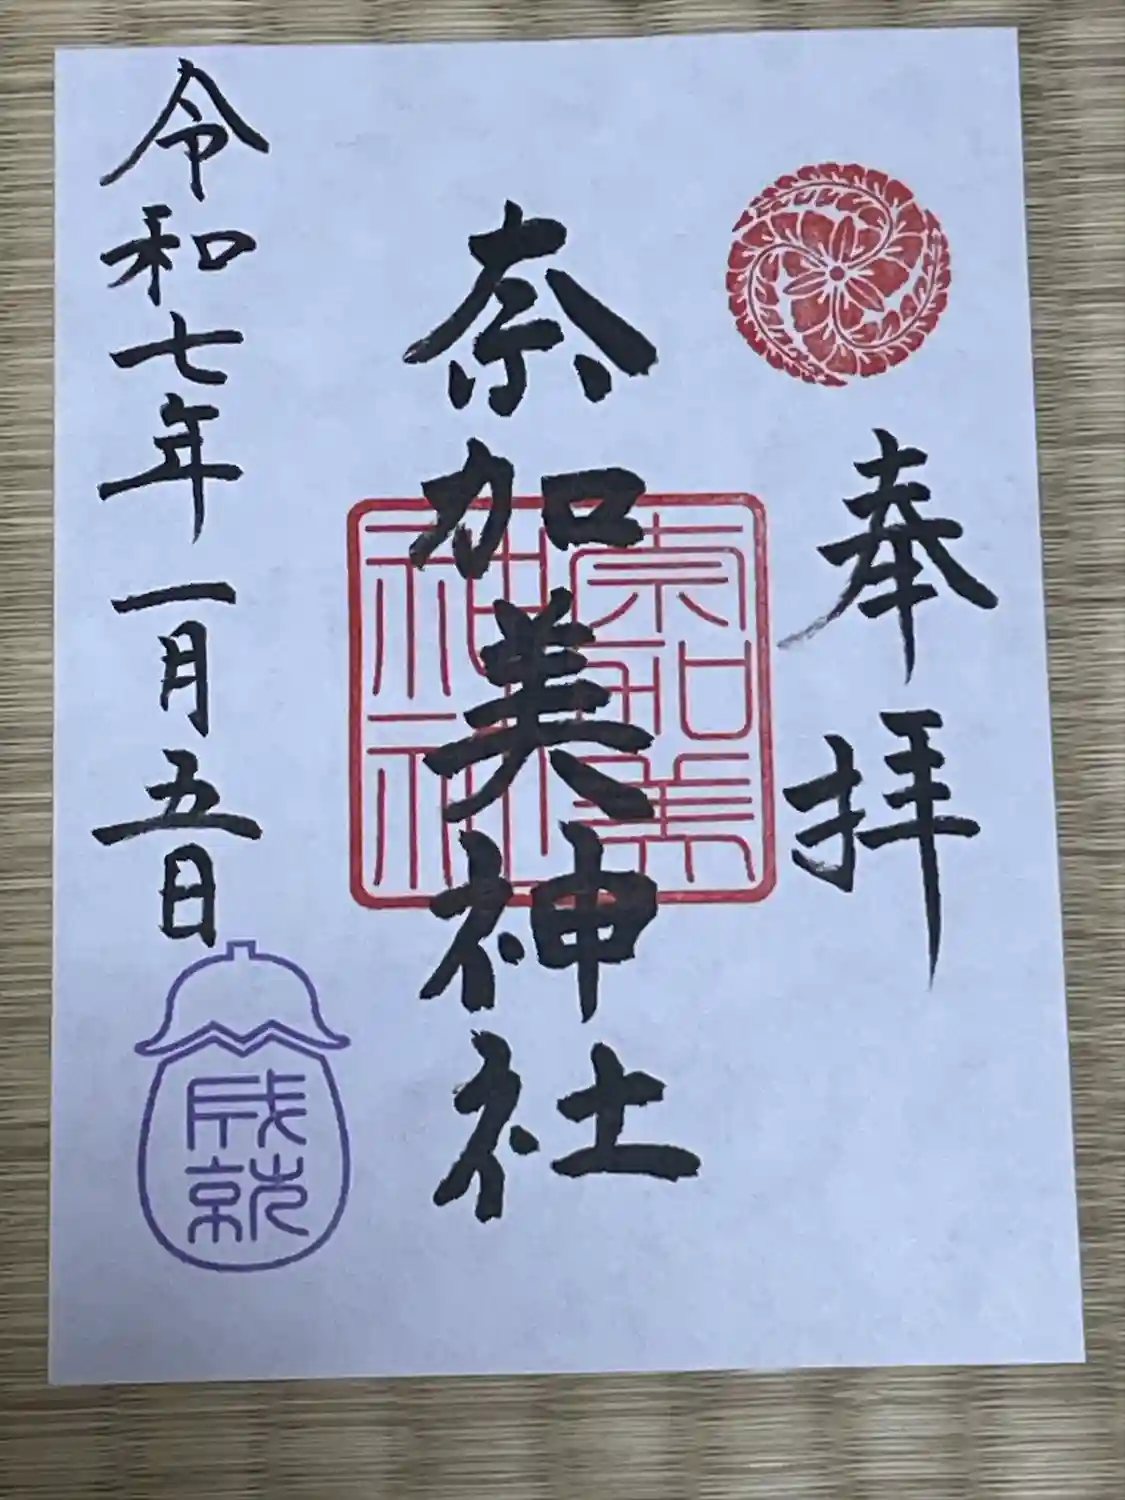 奉拝
奈加美神社
奈加美
神社
令和七年一月五日
成就